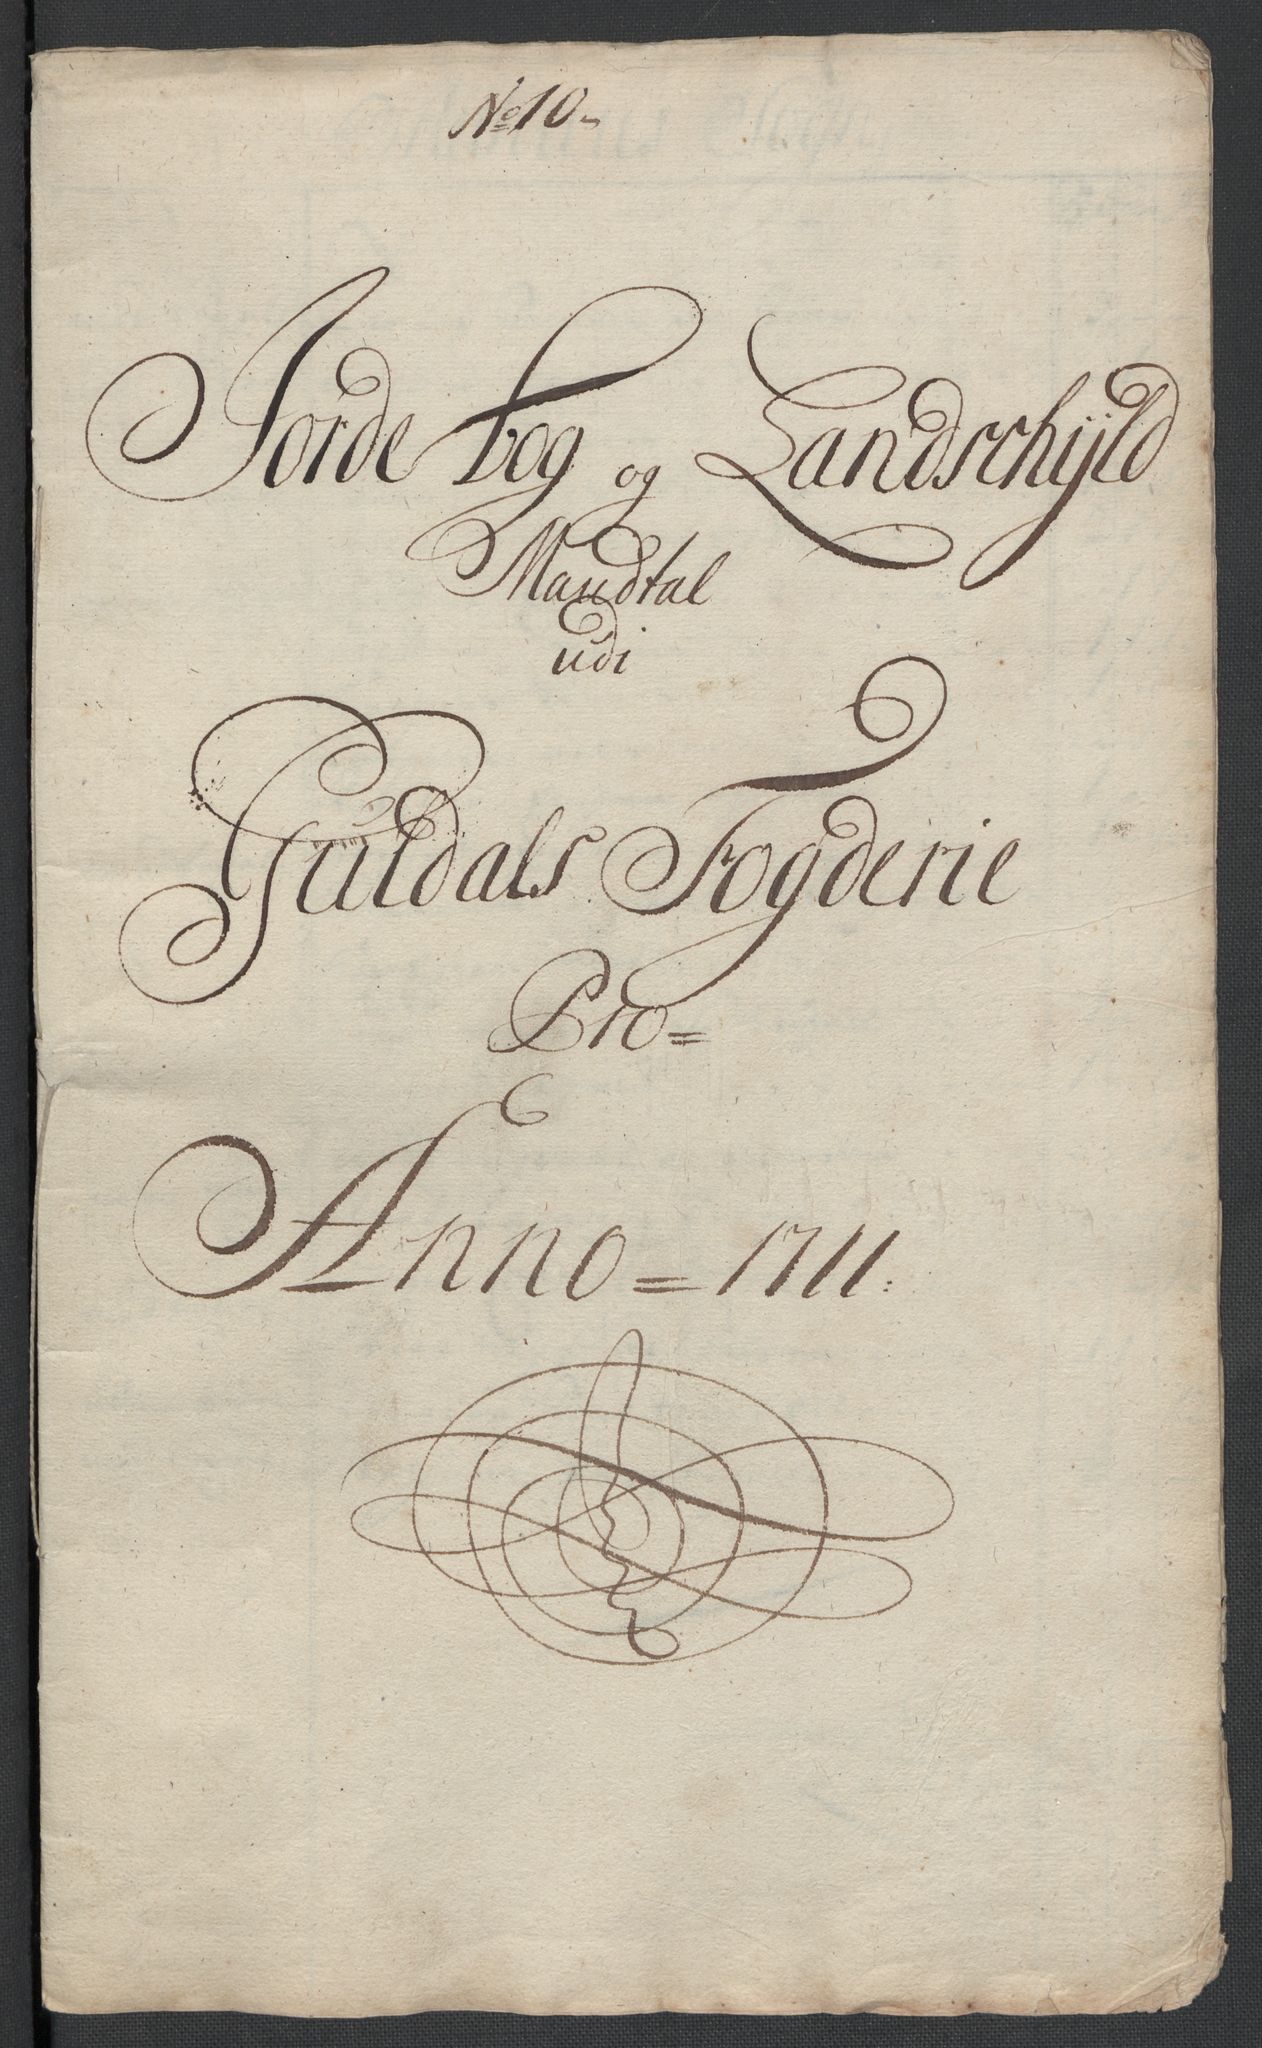 No 10-
Jorde bog og Landschÿld
Mandtal
udi
Guldals Fogderie
Pro=
Anno = 1711: